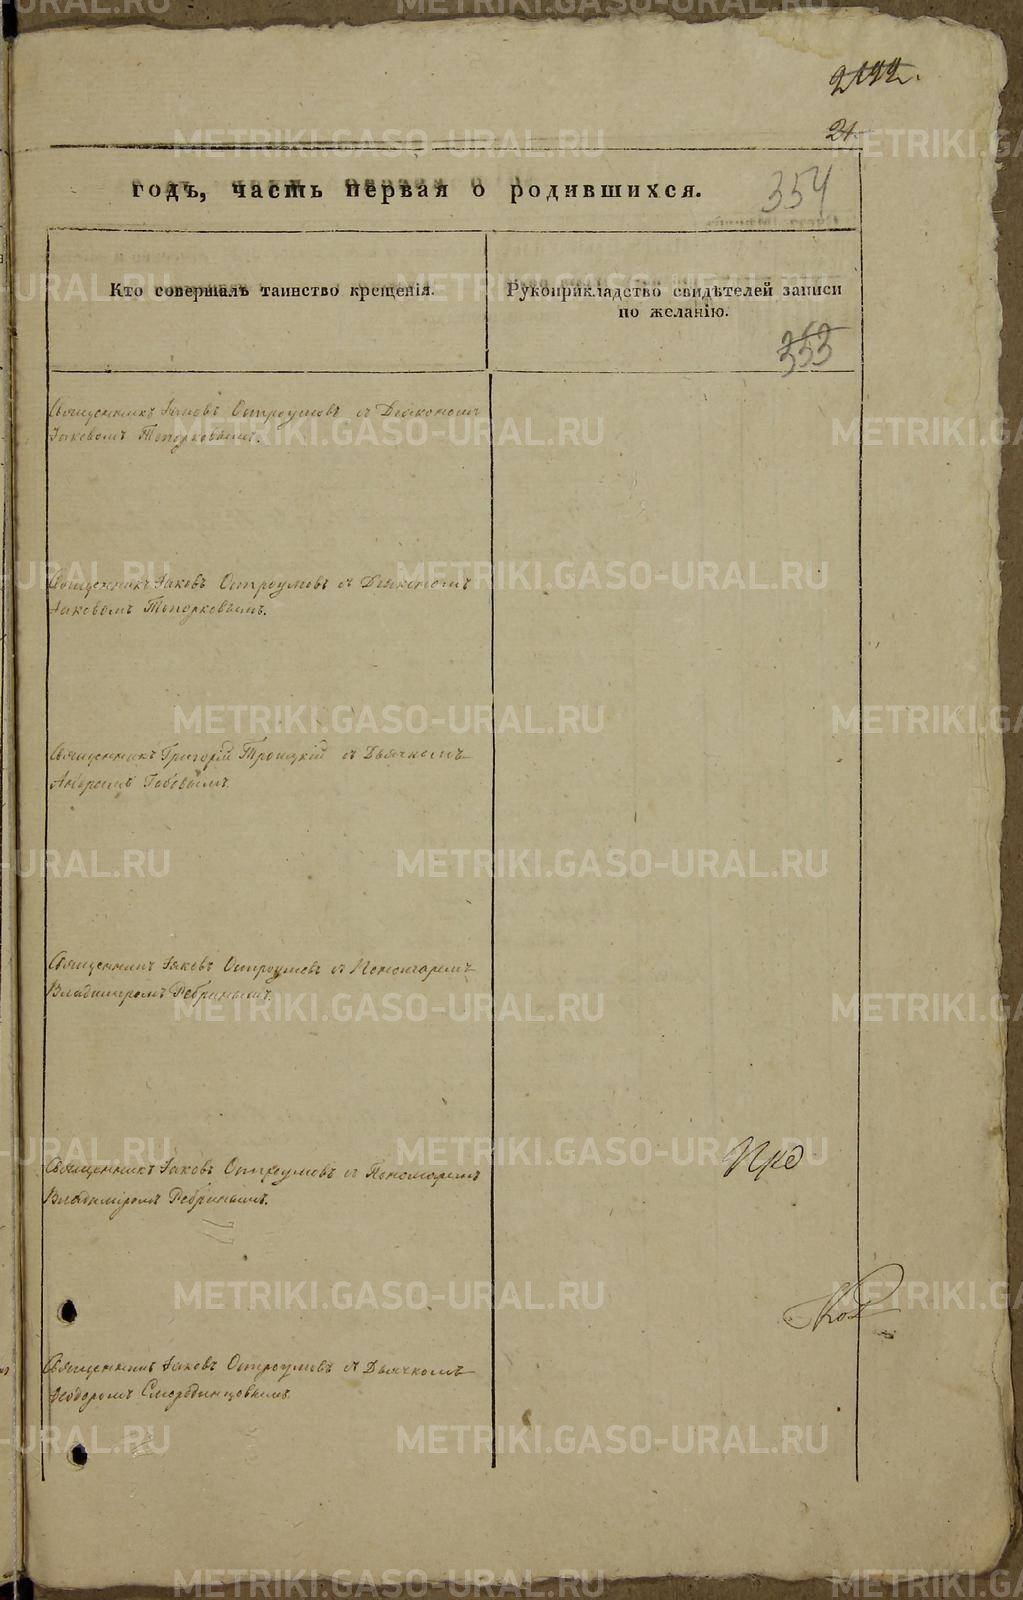 2122.
21.
годъ, часть первая о родившихся.
354
Кто совершалъ таинство крещенія.
Рукоприкладство свидѣтелей записи
по желанію.
353
Священникъ Іаковъ Остроумовъ съ Діакономъ
Іаковомъ Топорковымъ.
Священникъ Іаковъ Остроумовъ съ Діакономъ
Іаковомъ Топорковымъ.
Священникъ Григорій Троицкій съ Дьячкомъ
Священникъ Іаковъ Остроумовъ съ Пономаремъ
Владимиромъ Ребринымъ.
Священникъ Іаковъ Остроумовъ съ Пономаремъ
Владиміромъ Ребринымъ.
Священникъ Іаковъ Остроумовъ съ Дьячкомъ
Ѳеодоромъ Смородинцовымъ.
METRIKI.GASO-URAL.RU